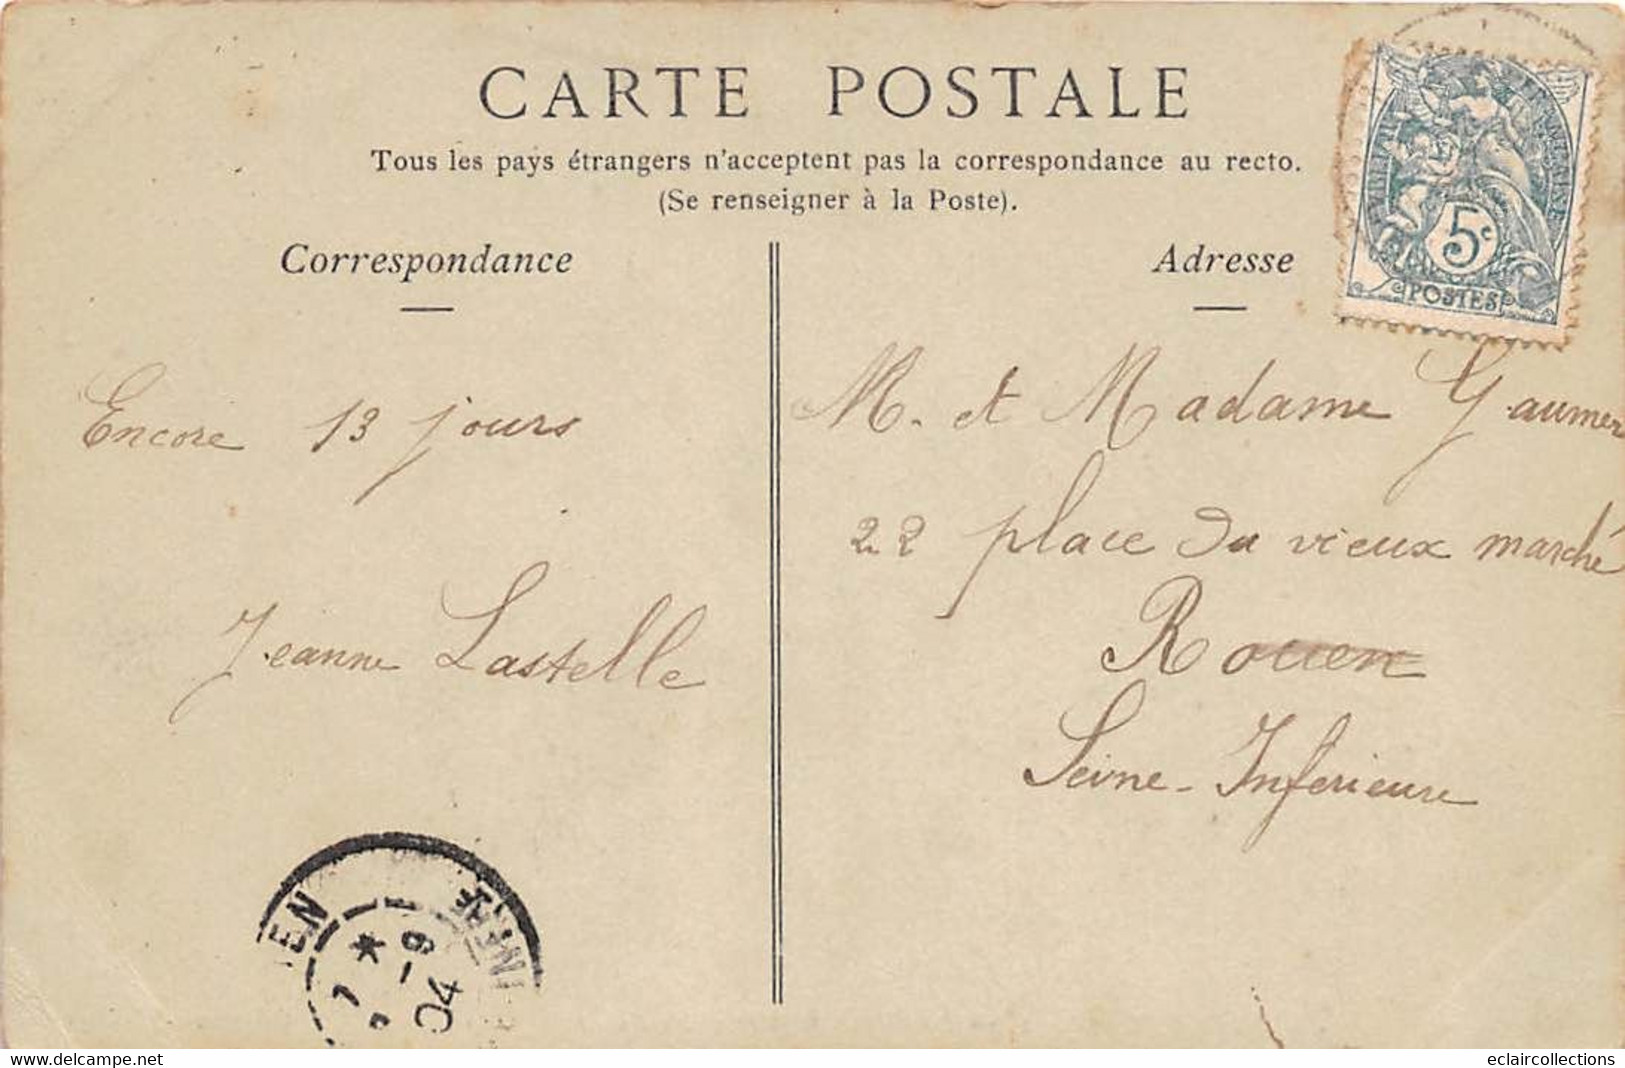 CARTE POSTALE
Tous les pays étrangers n'acceptent pas la correspondance au recto.
(Se renseigner à la Poste).
Correspondance
Encore 13 jours
Jeanne Lastelle
Adresse
M. et Madame Gaumer
22 place du vieux marché
Rouen
Seine-Inferieure
5c
POSTES
EN
INFRE
6 - 04
delcampe.net
eclaircollections